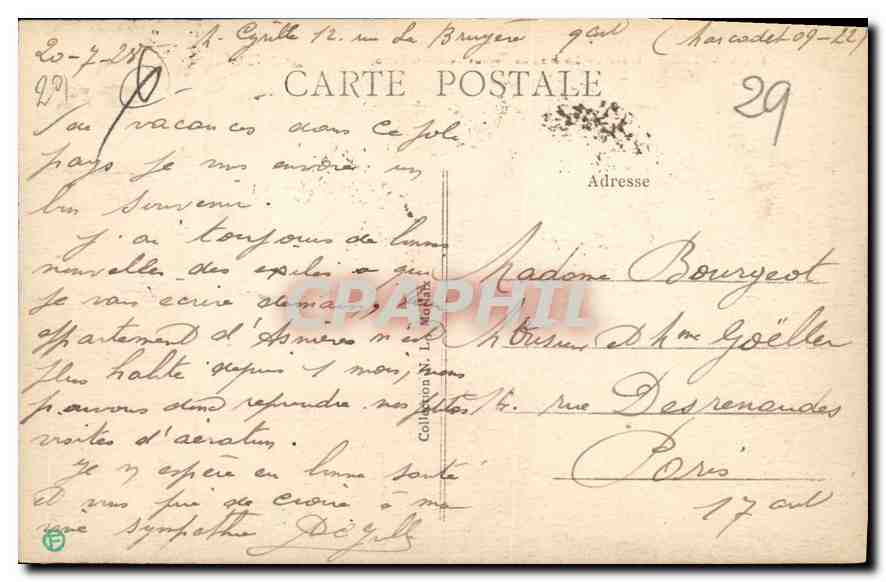 20-7-28 Cyrille 12. rue La Bruyère 9 ard (Marcadet 09-22)
29
CARTE POSTALE
29
vacances dans ce joli
pays je vous envoie un
bon souvenir.
Adresse
J'ai toujours de bonnes
nouvelles des exilés à qui
je vais écrire demain, leur
appartement d'Asnières n'est
plus habité depuis 1 mois, nous
pouvons donc reprendre nos petites
visites d'aération.
Je v espère en bonne santé
et vous prie de croire à ma
vraie sympathie
Collection N. L. Morlaix
Madame Bourgeot
Mr et Mme Goëller
rue Desrenaudes
Paris
17 ard
CPAPHIL